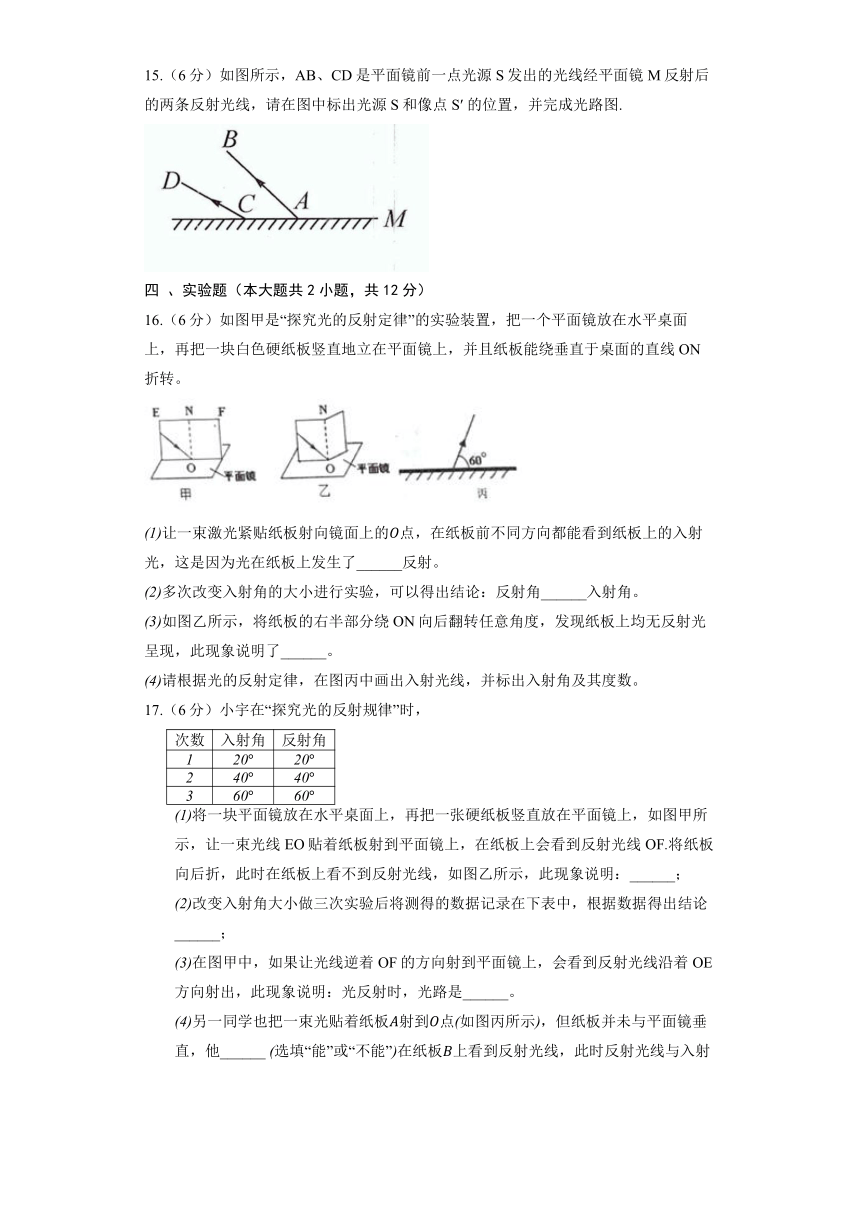 15.（6分）如图所示，AB、CD是平面镜前一点光源S发出的光线经平面镜M反射后
的两条反射光线，请在图中标出光源S和像点S′的位置，并完成光路图.
B
D
C
A
M
四 、实验题（本大题共2小题，共12分）
16.（6分）如图甲是“探究光的反射定律”的实验装置，把一个平面镜放在水平桌面
上，再把一块白色硬纸板竖直地立在平面镜上，并且纸板能绕垂直于桌面的直线ON
折转。
E N F
O
平面镜
甲
N
O
平面镜
乙
60°
丙
(1)让一束激光紧贴纸板射向镜面上的O点，在纸板前不同方向都能看到纸板上的入射
光，这是因为光在纸板上发生了______反射。
(2)多次改变入射角的大小进行实验，可以得出结论：反射角______入射角。
(3)如图乙所示，将纸板的右半部分绕ON向后翻转任意角度，发现纸板上均无反射光
呈现，此现象说明了______。
(4)请根据光的反射定律，在图丙中画出入射光线，并标出入射角及其度数。
17.（6分）小宇在“探究光的反射规律”时，
次数 入射角 反射角
1 20° 20°
2 40° 40°
3 60° 60°
(1)将一块平面镜放在水平桌面上，再把一张硬纸板竖直放在平面镜上，如图甲所
示，让一束光线EO贴着纸板射到平面镜上，在纸板上会看到反射光线OF.将纸板
向后折，此时在纸板上看不到反射光线，如图乙所示，此现象说明：______；
(2)改变入射角大小做三次实验后将测得的数据记录在下表中，根据数据得出结论
______；
(3)在图甲中，如果让光线逆着OF的方向射到平面镜上，会看到反射光线沿着OE
方向射出，此现象说明：光反射时，光路是______。
(4)另一同学也把一束光贴着纸板A射到O点(如图丙所示)，但纸板并未与平面镜垂
直，他______ (选填“能”或“不能”)在纸板B上看到反射光线，此时反射光线与入射